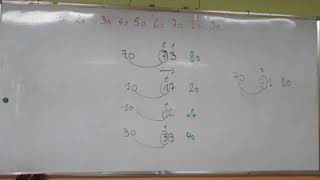 30 40 50 60 70 80 90
t
70 73 80
t
10 17 20
10 12 20
t
30 39 40
70 80